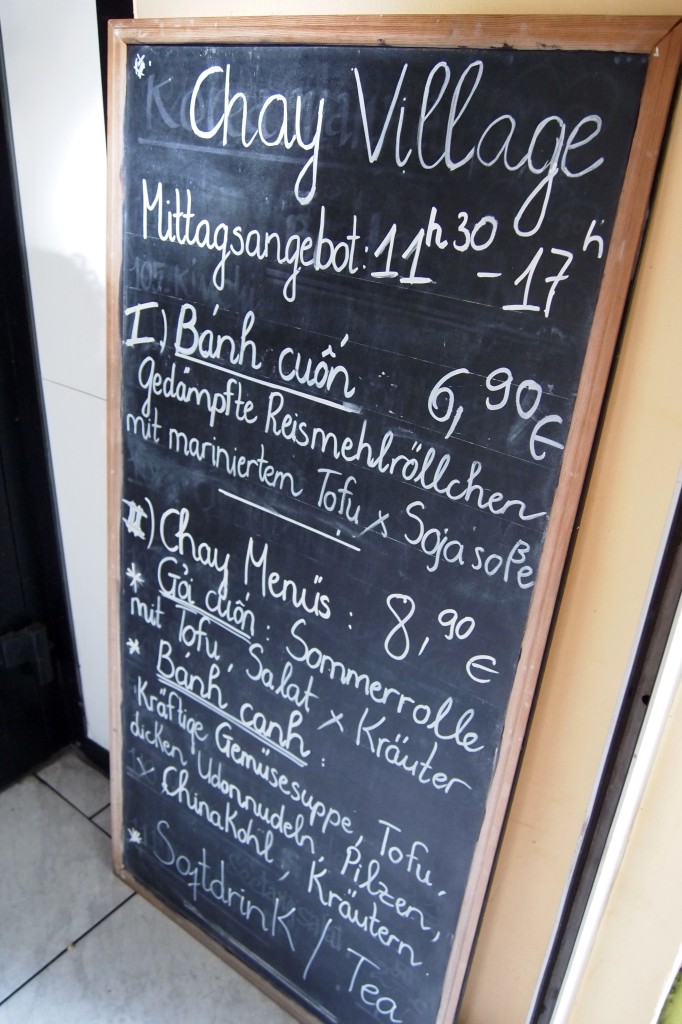 Chay Village
Mittagsangebot: 11h30 - 17h
I) Bánh cuốn : 6,90€
gedämpfte Reismehlröllchen
mit mariniertem Tofu x Sojasoße
II) Chay Menüs : 8,90€
* Gỏi cuốn : Sommerrolle
mit Tofu, Salat x Kräuter
* Bánh canh :
Kräftige Gemüsesuppe, Tofu,
dicken Udonnudeln, Pilzen,
Chinakohl, Kräutern.
* Softdrink / Tea